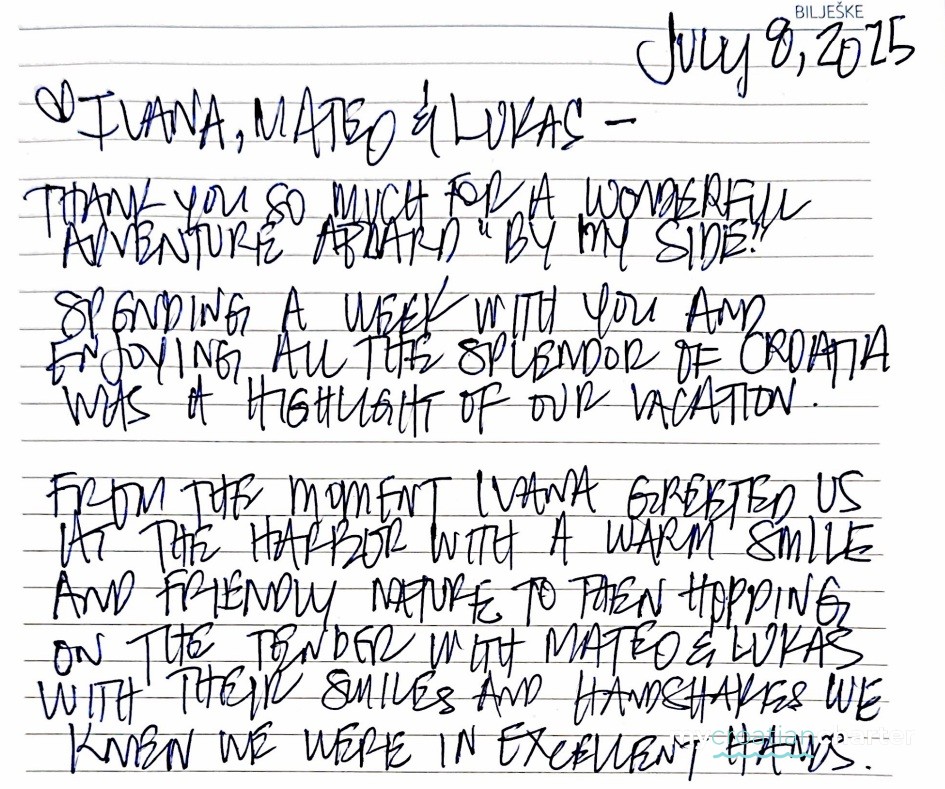 BILJEŠKE
JULY 8, 2025
♡ IVANA, MATEO & LUKAS —
THANK YOU SO MUCH FOR A WONDERFUL
ADVENTURE ABOARD "BY MY SIDE."
SPENDING A WEEK WITH YOU AND
ENJOYING ALL THE SPLENDOR OF CROATIA
WAS A HIGHLIGHT OF OUR VACATION.
FROM THE MOMENT IVANA GREETED US
AT THE HARBOR WITH A WARM SMILE
AND FRIENDLY NATURE TO THEN HOPPING
ON THE TENDER WITH MATEO & LUKAS
WITH THEIR SMILES AND HANDSHAKES WE
KNEW WE WERE IN EXCELLENT HANDS.
mycroatiancharter